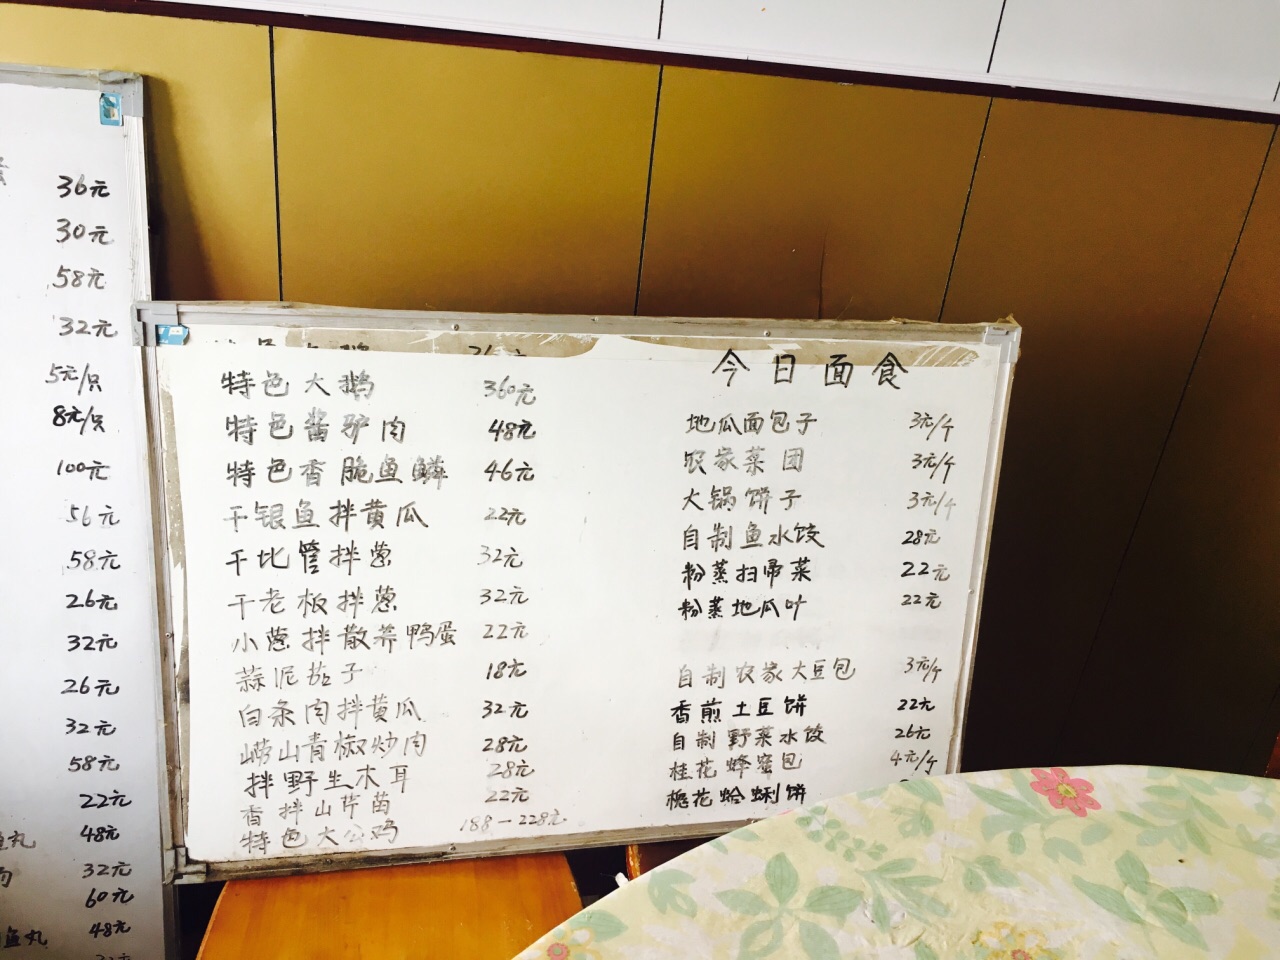 36元
30元
58元
32元
5元/只
8元/只
100元
56元
58元
26元
32元
26元
32元
58元
22元
丸 48元
32元
60元
鱼丸 48元
特色大鹅 360元
特色酱驴肉 48元
特色香脆鱼鳞 46元
干银鱼拌黄瓜 22元
干比管拌葱 32元
干老板拌葱 32元
小葱拌散养鸭蛋 22元
蒜泥茄子 18元
白条肉拌黄瓜 32元
崂山青椒炒肉 28元
拌野生木耳 28元
香拌山芹苗 22元
特色大公鸡 188-228元
今日面食
地瓜面包子 3元/个
农家菜团 3元/个
大锅饼子 3元/个
自制鱼水饺 28元
粉蒸扫帚菜 22元
粉蒸地瓜叶 22元
自制农家大豆包 3元/个
香煎土豆饼 22元
自制野菜水饺 26元
桂花蜂蜜包 4元/个
槐花蛤蜊饼